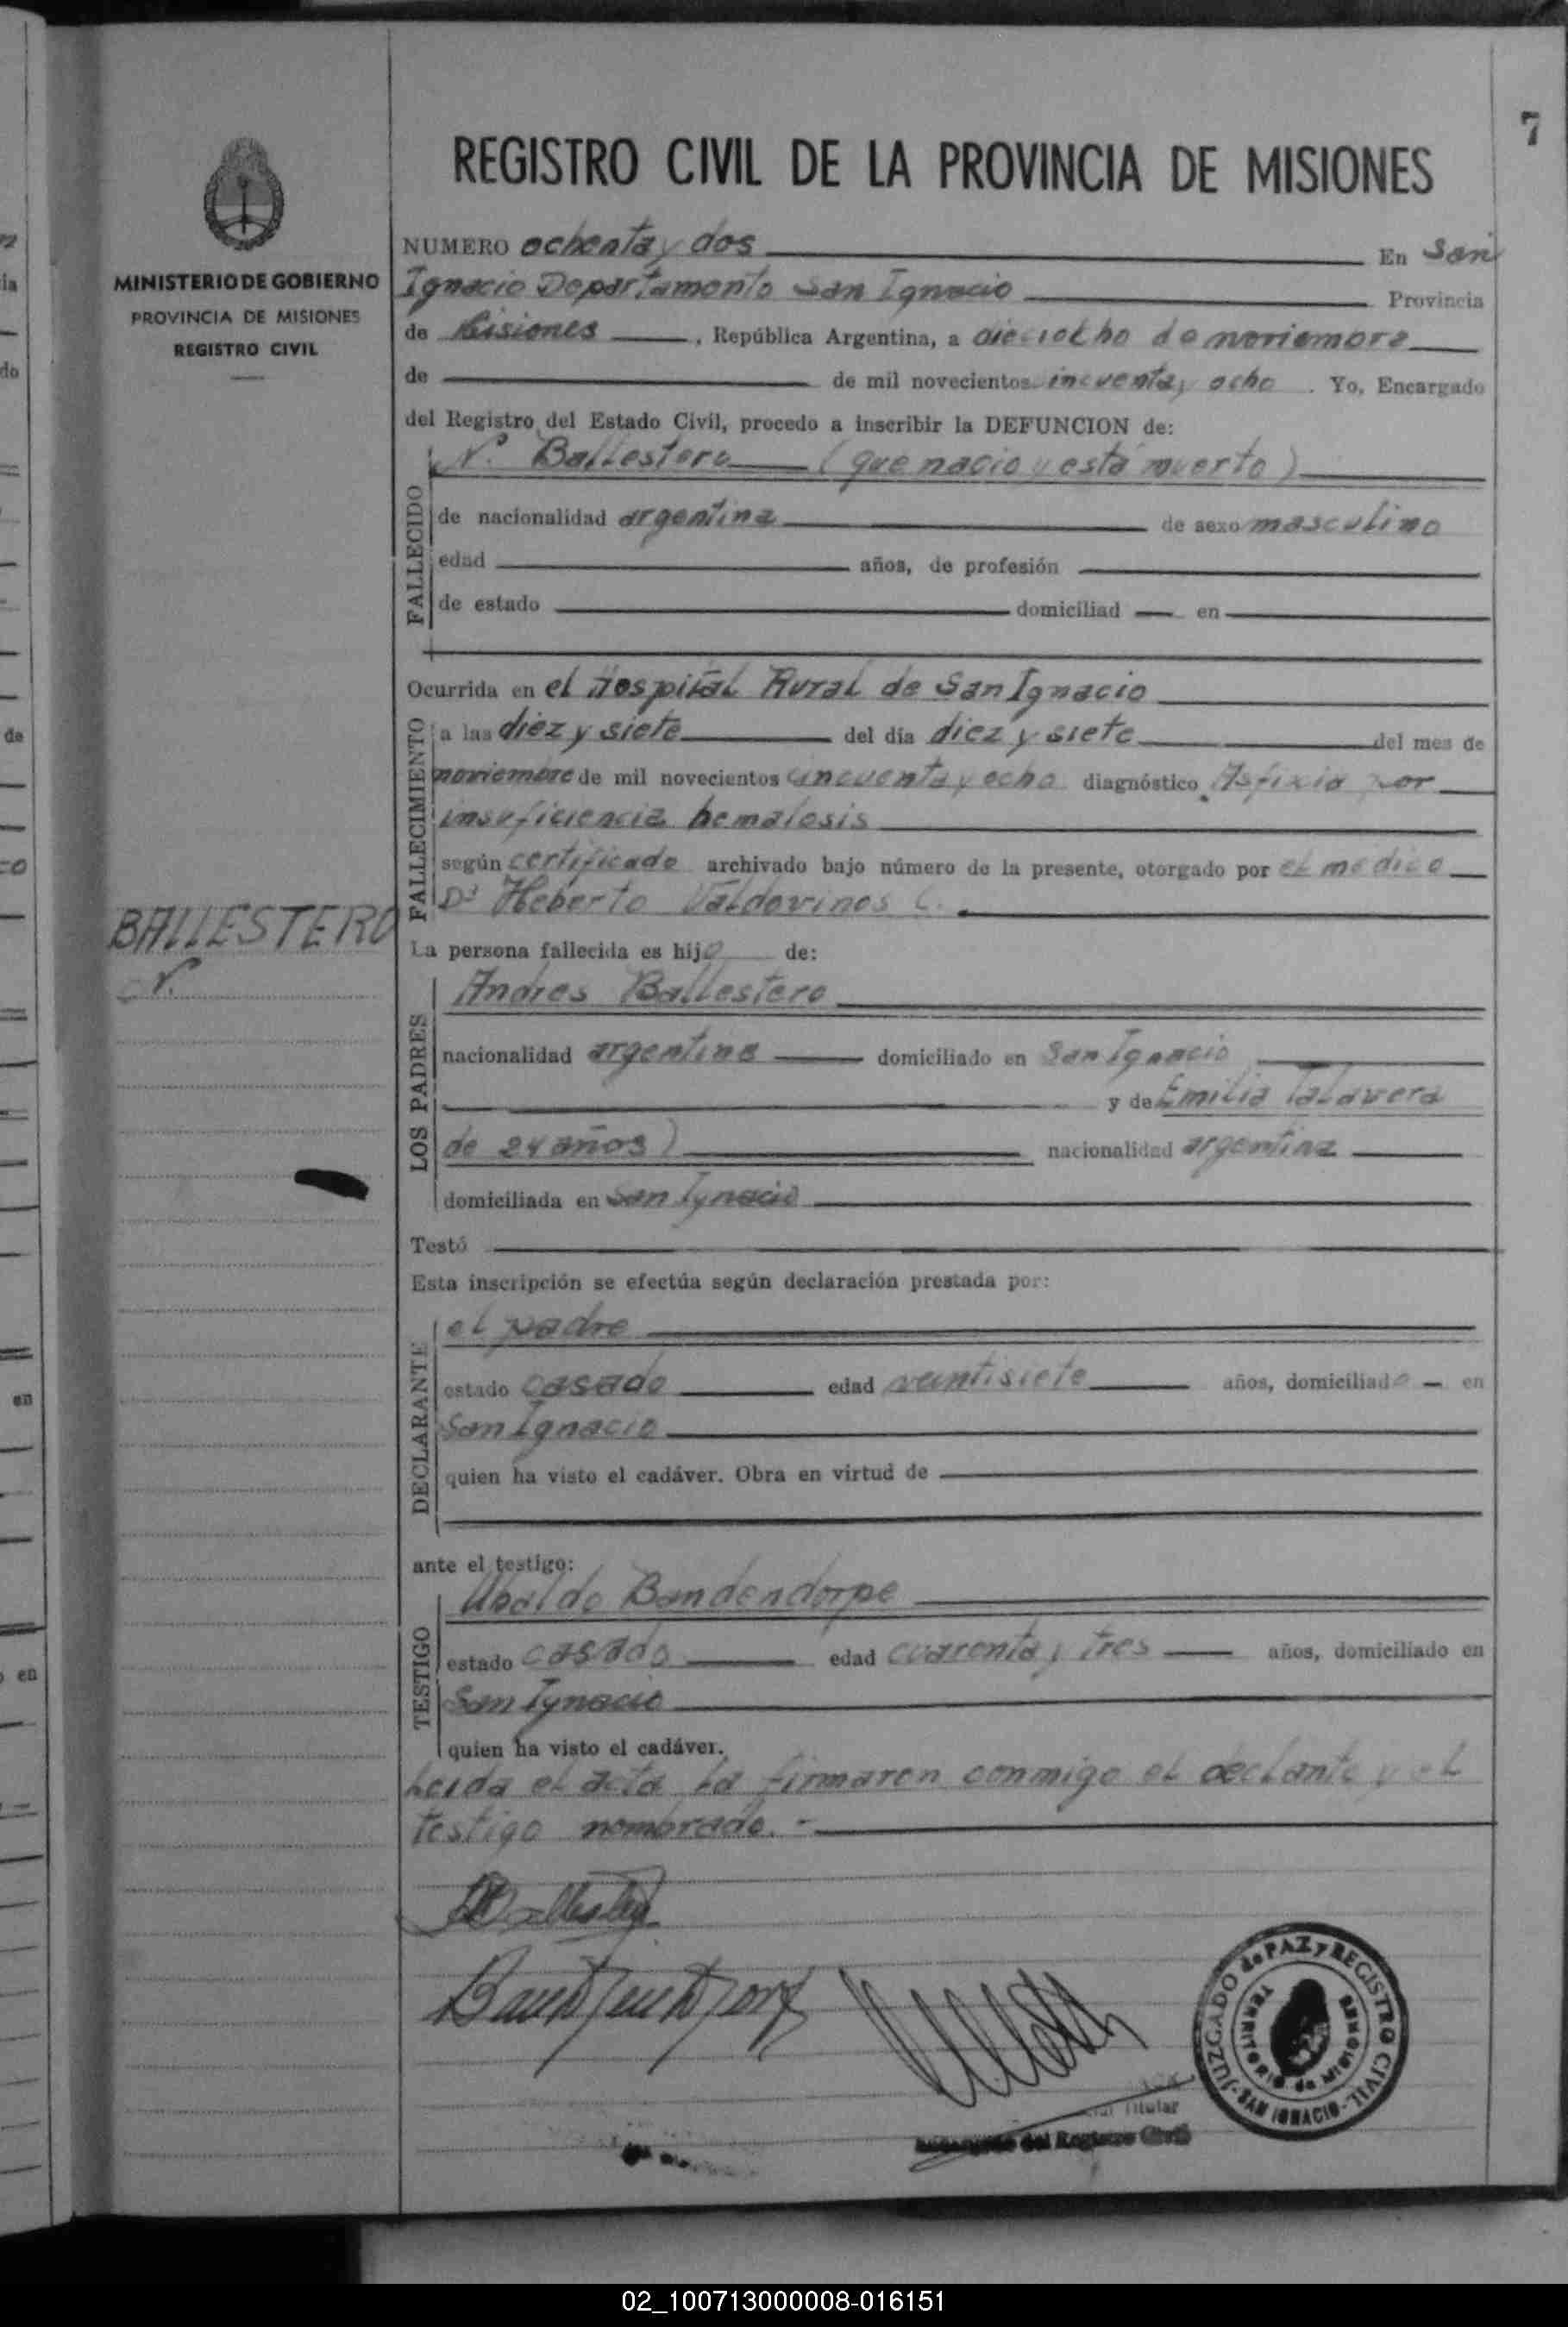 7
REGISTRO CIVIL DE LA PROVINCIA DE MISIONES
MINISTERIO DE GOBIERNO
PROVINCIA DE MISIONES
REGISTRO CIVIL
NUMERO ochenta y dos En San
Ignacio Departamento San Ignacio Provincia
de Misiones , República Argentina, a dieciocho de noviembre
de de mil novecientos cincuenta y ocho . Yo, Encargado
del Registro del Estado Civil, procedo a inscribir la DEFUNCION de:
N. Ballestero (que nacio y está muerto)
FALLECIDO
de nacionalidad argentina de sexo masculino
edad años, de profesión
de estado domiciliad en
Ocurrida en el Hospital Rural de San Ignacio
FALLECIMIENTO
a las diez y siete del día diez y siete del mes de
noviembre de mil novecientos cincuenta y ocho diagnóstico Asfixia por
insuficiencia hematosis
según certificado archivado bajo número de la presente, otorgado por el médico
Dr Heberto Valdovinos C.
BALLESTERO
N.
La persona fallecida es hijo de:
LOS PADRES
Andres Ballestero
nacionalidad argentina domiciliado en San Ignacio
y de Emilia Talavera
de 24 años) nacionalidad argentina
domiciliada en San Ignacio
Testó
Esta inscripción se efectúa según declaración prestada por:
DECLARANTE
el padre
estado casado edad veintisiete años, domiciliado en
San Ignacio
quien ha visto el cadáver. Obra en virtud de
ante el testigo:
TESTIGO
Ubaldo Bandendorpe
estado casado edad cuarenta y tres años, domiciliado en
San Ignacio
quien ha visto el cadáver.
Leida el acta la firmaron conmigo el declante y el
testigo nombrado. -
Titular
Encargado del Registro Civil
JUZGADO de PAZ y REGISTRO CIVIL
SAN IGNACIO
TERRITORIO de MISIONES
02_100713000008-016151